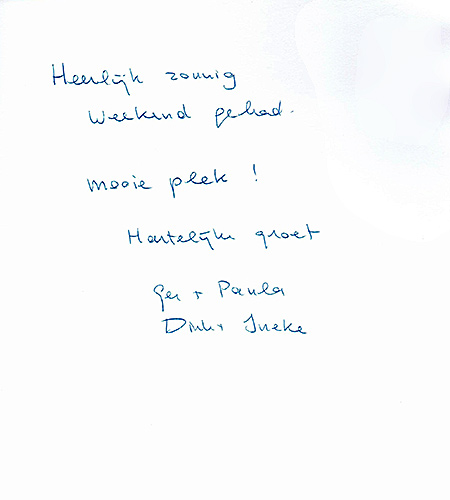 Heerlijk zonnig
weekend gehad.
mooie plek!
Hartelijke groet
Ger + Paula
Dirk + Ineke